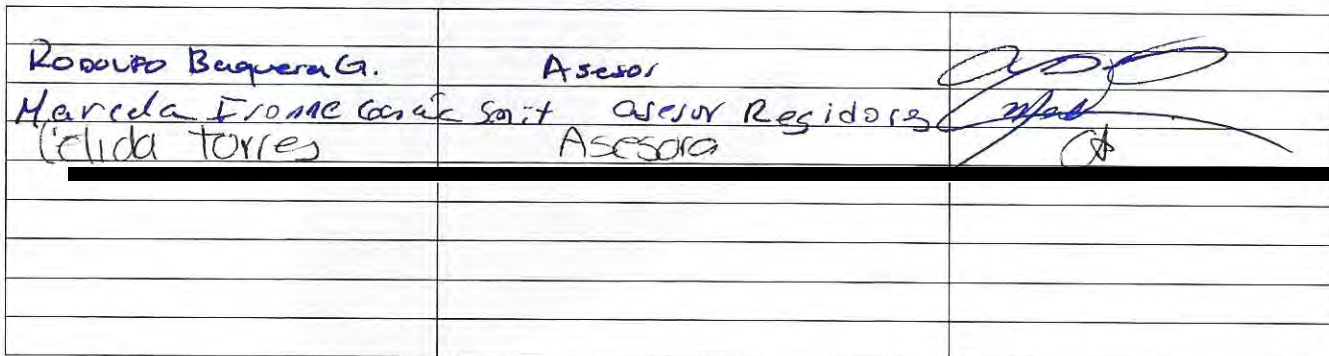 Rodolfo Baquera G. Asesor
Marcela Ivonne Smit asesor Regidores
Célida Torres Asesora